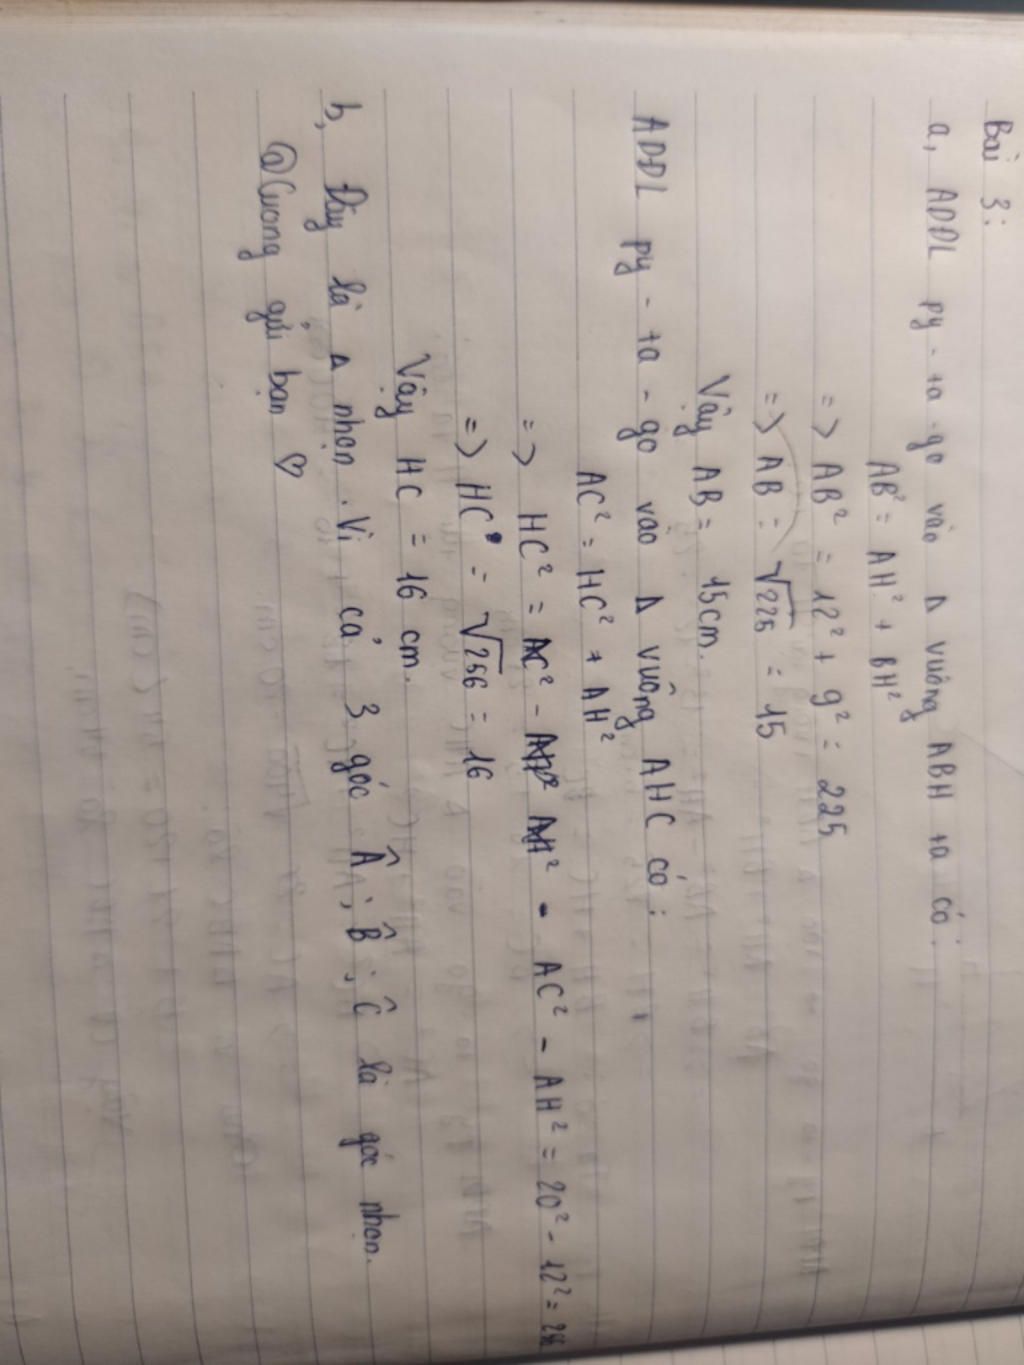 Bài 3:
a, ADĐL py - ta - go vào Δ vuông ABH ta có:
AB² = AH² + BH²
=> AB² = 12² + 9² = 225
=> AB = √225 = 15
Vậy AB = 15cm.
ADĐL py - ta - go vào Δ vuông AHC có:
AC² = HC² + AH²
=> HC² = AC² - AH² = AC² - AH² = 20² - 12² = 256
=> HC = √256 = 16
Vậy HC = 16 cm.
b, Đây là Δ nhọn. Vì cả 3 góc Â; B̂; Ĉ là góc nhọn.
@Cuong gửi bạn ♡